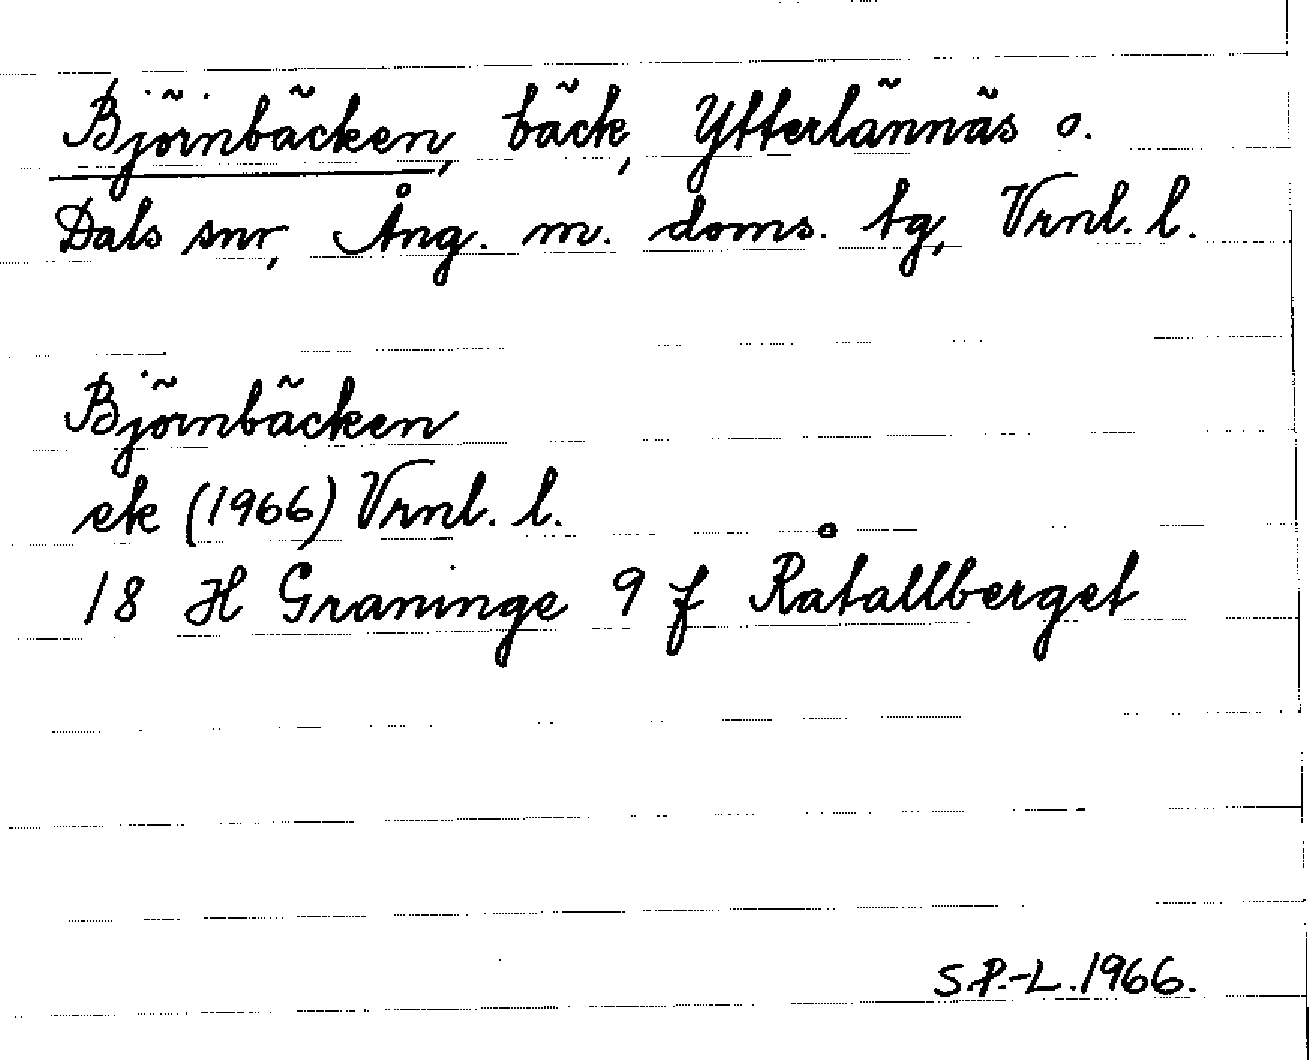 Björnbäcken, bäck, Ytterlännäs o.
Dals snr, Ång. m. doms. tg, Vrnl. l.
Björnbäcken
ek (1966) Vrnl. l.
18 H Graninge 9 f Råtallberget
S.P.-L. 1966.